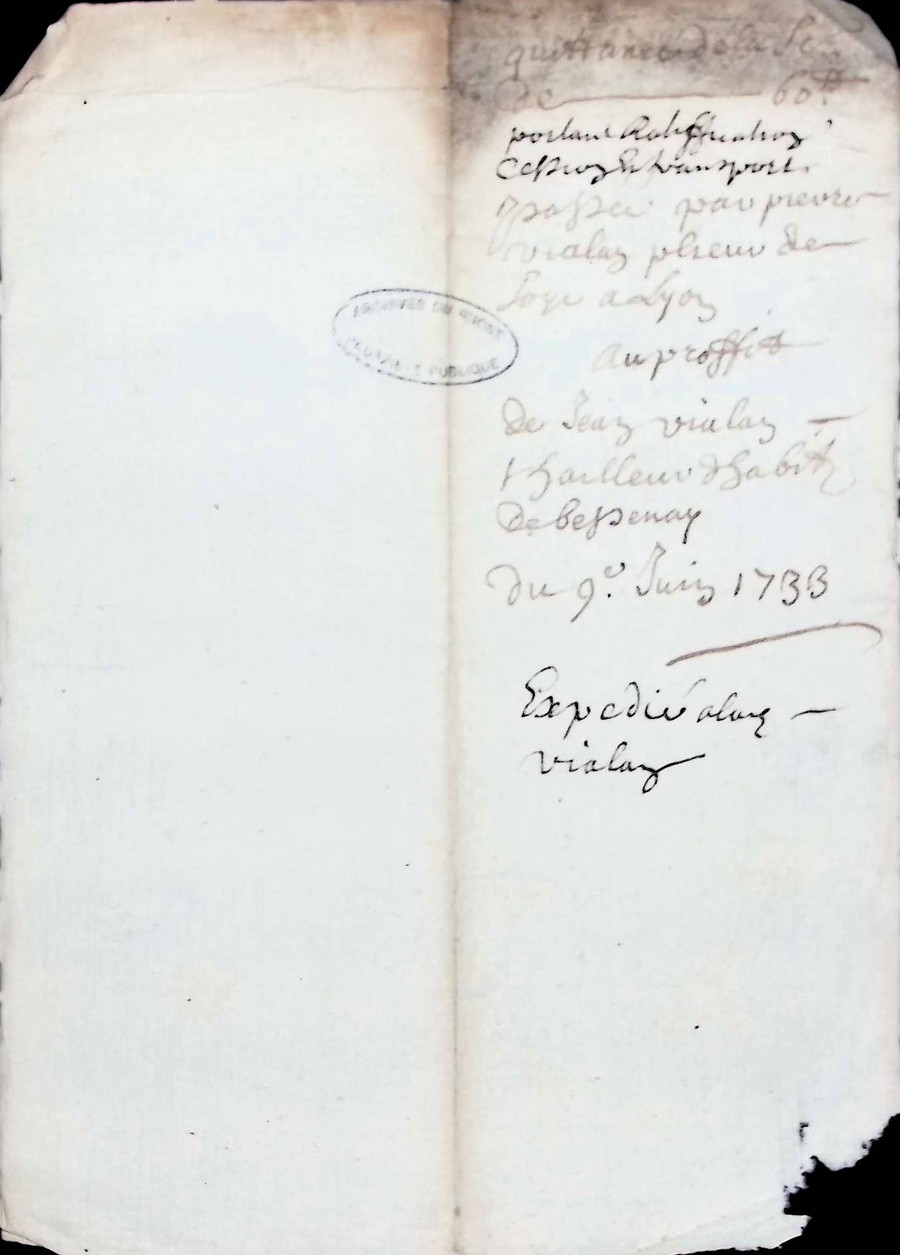 quittance de la So
de 60 ₶
portant Ratiffication
Cession & transport
passée par pierre
vialay plieur de
soye a Lyon
au proffit
de Jean vialay
thailleur d'habit
de bessenay
du 9e. Juin 1733
Expedié aud
vialay
ARCHIVES DU RHÔNE
PUBLIQUE